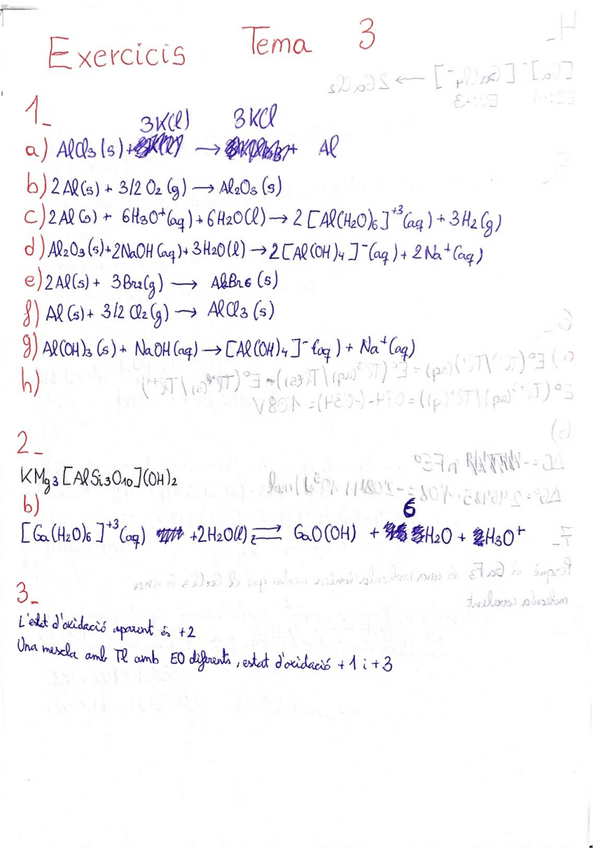 Exercicis Tema 3
1_
a) AlCl3 (s) + 3K(l) → 3KCl + Al
b) 2Al(s) + 3/2 O2 (g) → Al2O3 (s)
c) 2Al(s) + 6H3O+(aq) + 6H2O(l) → 2[Al(H2O)6]+3(aq) + 3H2(g)
d) Al2O3(s) + 2NaOH(aq) + 3H2O(l) → 2[Al(OH)4]-(aq) + 2Na+(aq)
e) 2Al(s) + 3Br2(g) → Al2Br6 (s)
f) Al(s) + 3/2 Cl2(g) → AlCl3 (s)
g) Al(OH)3 (s) + NaOH(aq) → [Al(OH)4]-(aq) + Na+(aq)
h)
2_
KMg3[AlSi3O10](OH)2
b)
[Ga(H2O)6]+3(aq) +2H2O(l) ⇌ GaO(OH) + 6 H2O + H3O+
3_
L'estat d'oxidació aparent és +2
Una mescla amb Tl amb EO diferents, estat d'oxidació +1 i +3